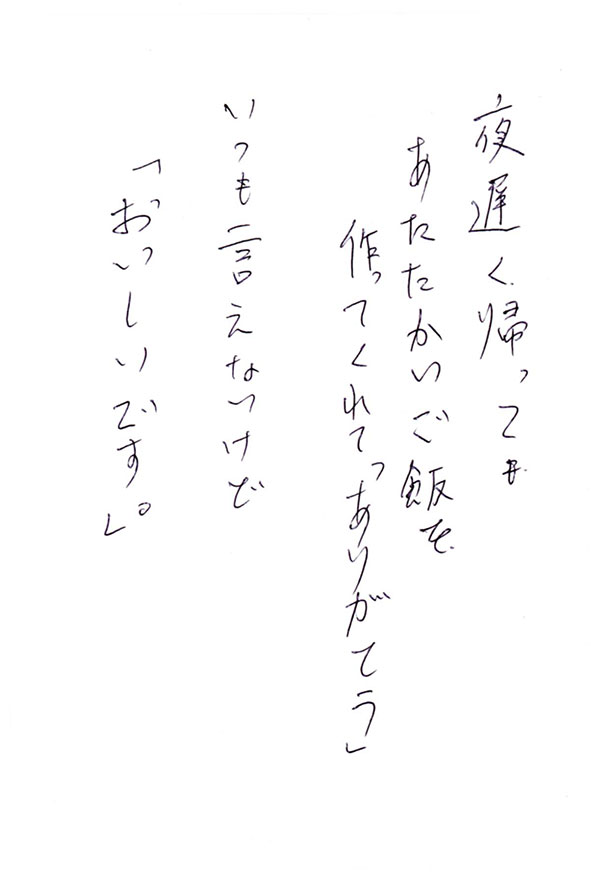 夜遅く帰っても
あたたかいご飯を
作ってくれて「ありがとう」
いつも言えないけど
「おいしいです」。